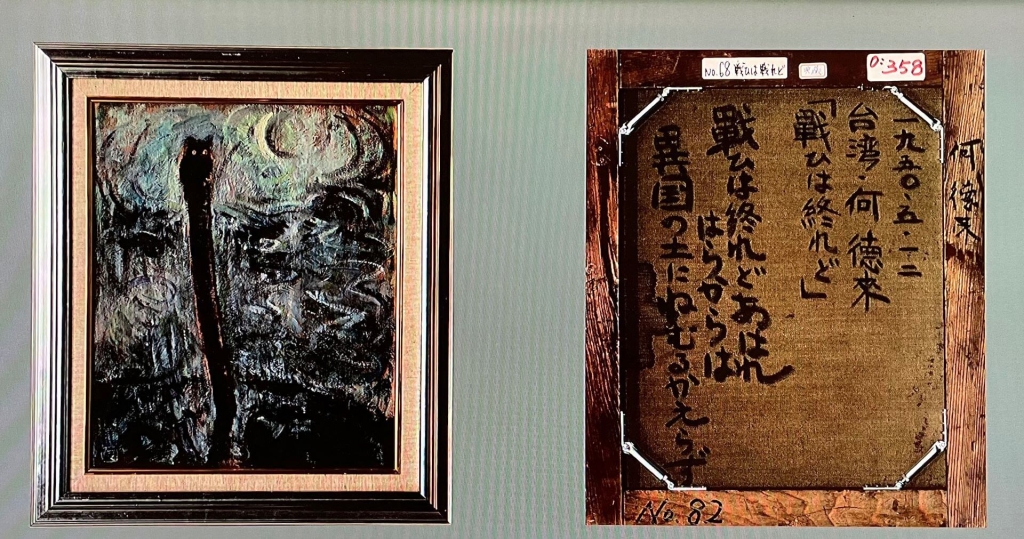 No.68 戦ひは終れど
0:358
一九五〇・五・一二
台湾・何 德來
「戰ひは終れど」
戰ひは終れどあはれ
はらからは
異国の土にねむるかえらず
何德來
No.82